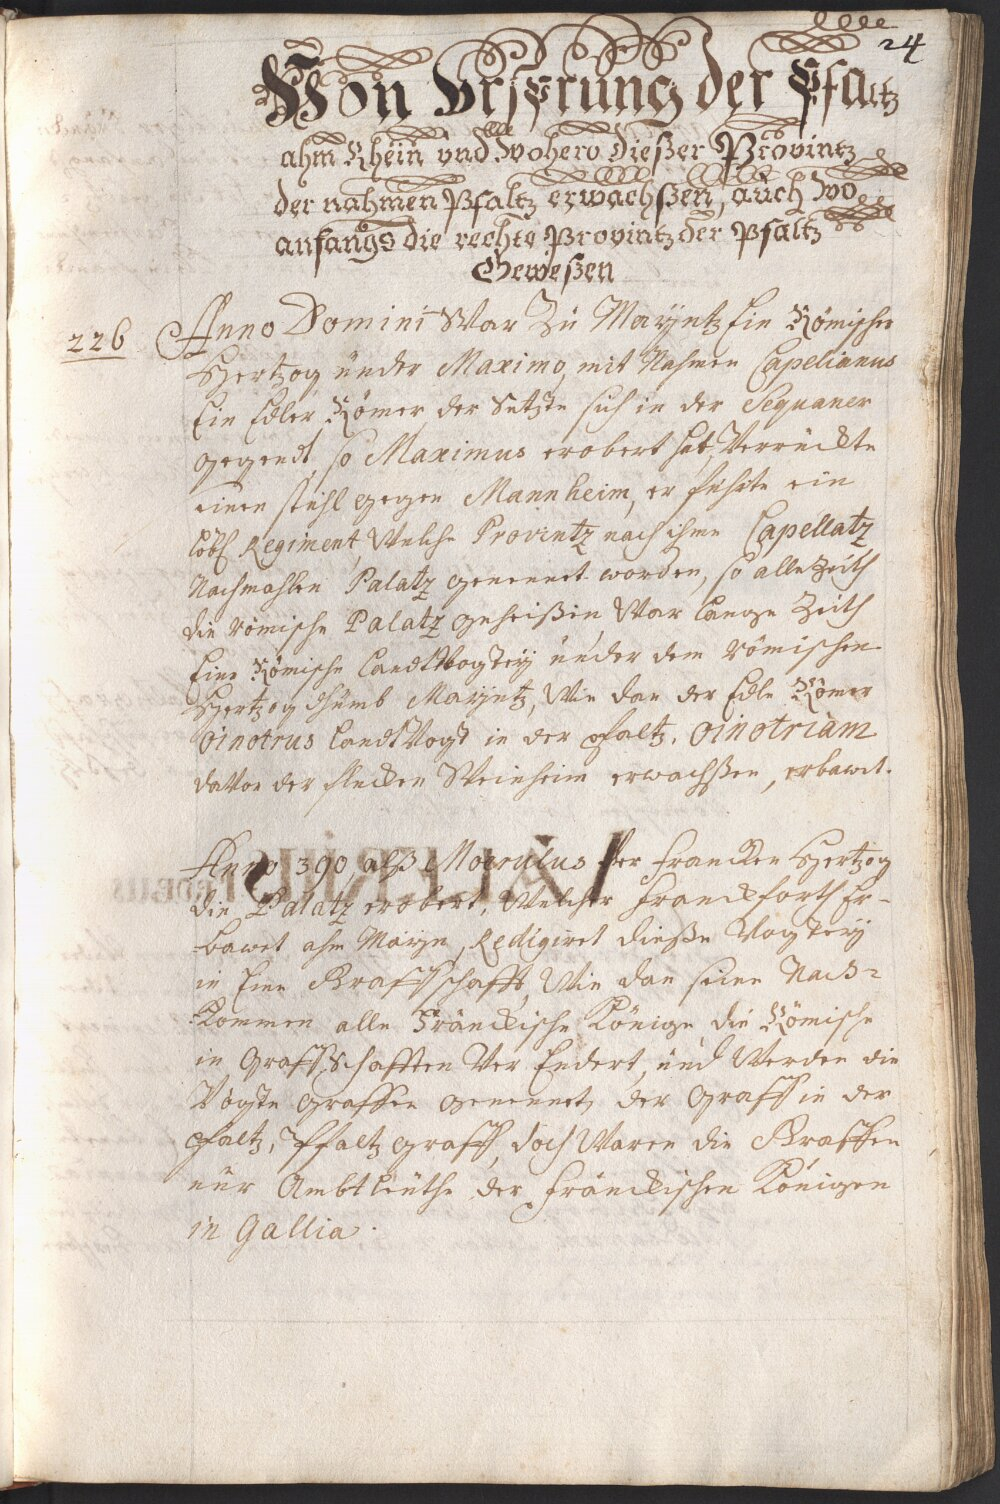 24
Von Vrsprung der Pfaltz
ahm Rhein vnd Wohero Dießer Provintz
der nahmen Pfaltz erwachßen, auch Wo
anfangs die rechte Provintz der Pfaltz
Geweßen
226 Anno Domini War Zu Mayntz Ein Römischer
Hertzog under Maximo, mit Nahmen Capelianus
Ein Edler Römer der Setzte sich in der Sequaner
gegendt, so Maximus erobert hat, Verruckte
einen stuhl gegen Mannheim, er fuhrte ein
löbl Regiment, Welche Provintz nach ihme Capellatz
Nachmahlen Palatz genennet worden, so alle Zeith
die römische Palatz geheißen War lange Zeith
Eine Römische LandtVogtey under dem römischen
Hertzog thumb Mayntz, Wie dan der Edle Römer
Oinotrus LandtVogt in der pfaltz. Oinotriam
davon der flecken Weinheim erwachßen, erbawet.
Anno 390 alß Marculus der francken Hertzog
die Palatz erobert, Welcher franckforth Er-
bawet ahm Mayn, Redigiret dieße Vogtey
in Eine Graffschafft, Wie dan seine Nach-
Kommen alle Fränckische Könige die Römische
in Graffschafften Ver Endert, und Werden die
Vögte Graffen genennet, der Graff in der
pfaltz, Pfaltz graff, doch Waren die Graffen
nur Ambtleuthe der fränckischen Königen
in Gallia.